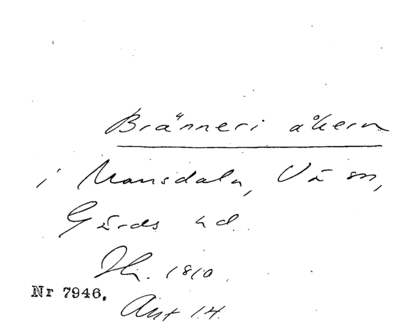 Bränneri åkern
i Mansdala, Vä sn,
Gärds hd.
1810.
Nr 7946.
Akt 14.